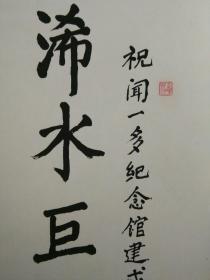 祝闻一多纪念馆建成
浠水巨